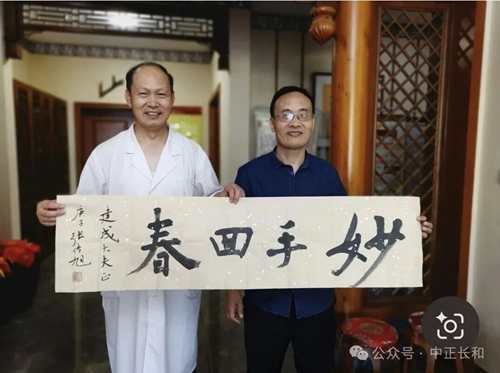 妙手回春
建成大夫正
庚子 张传旭
公众号·中正长和